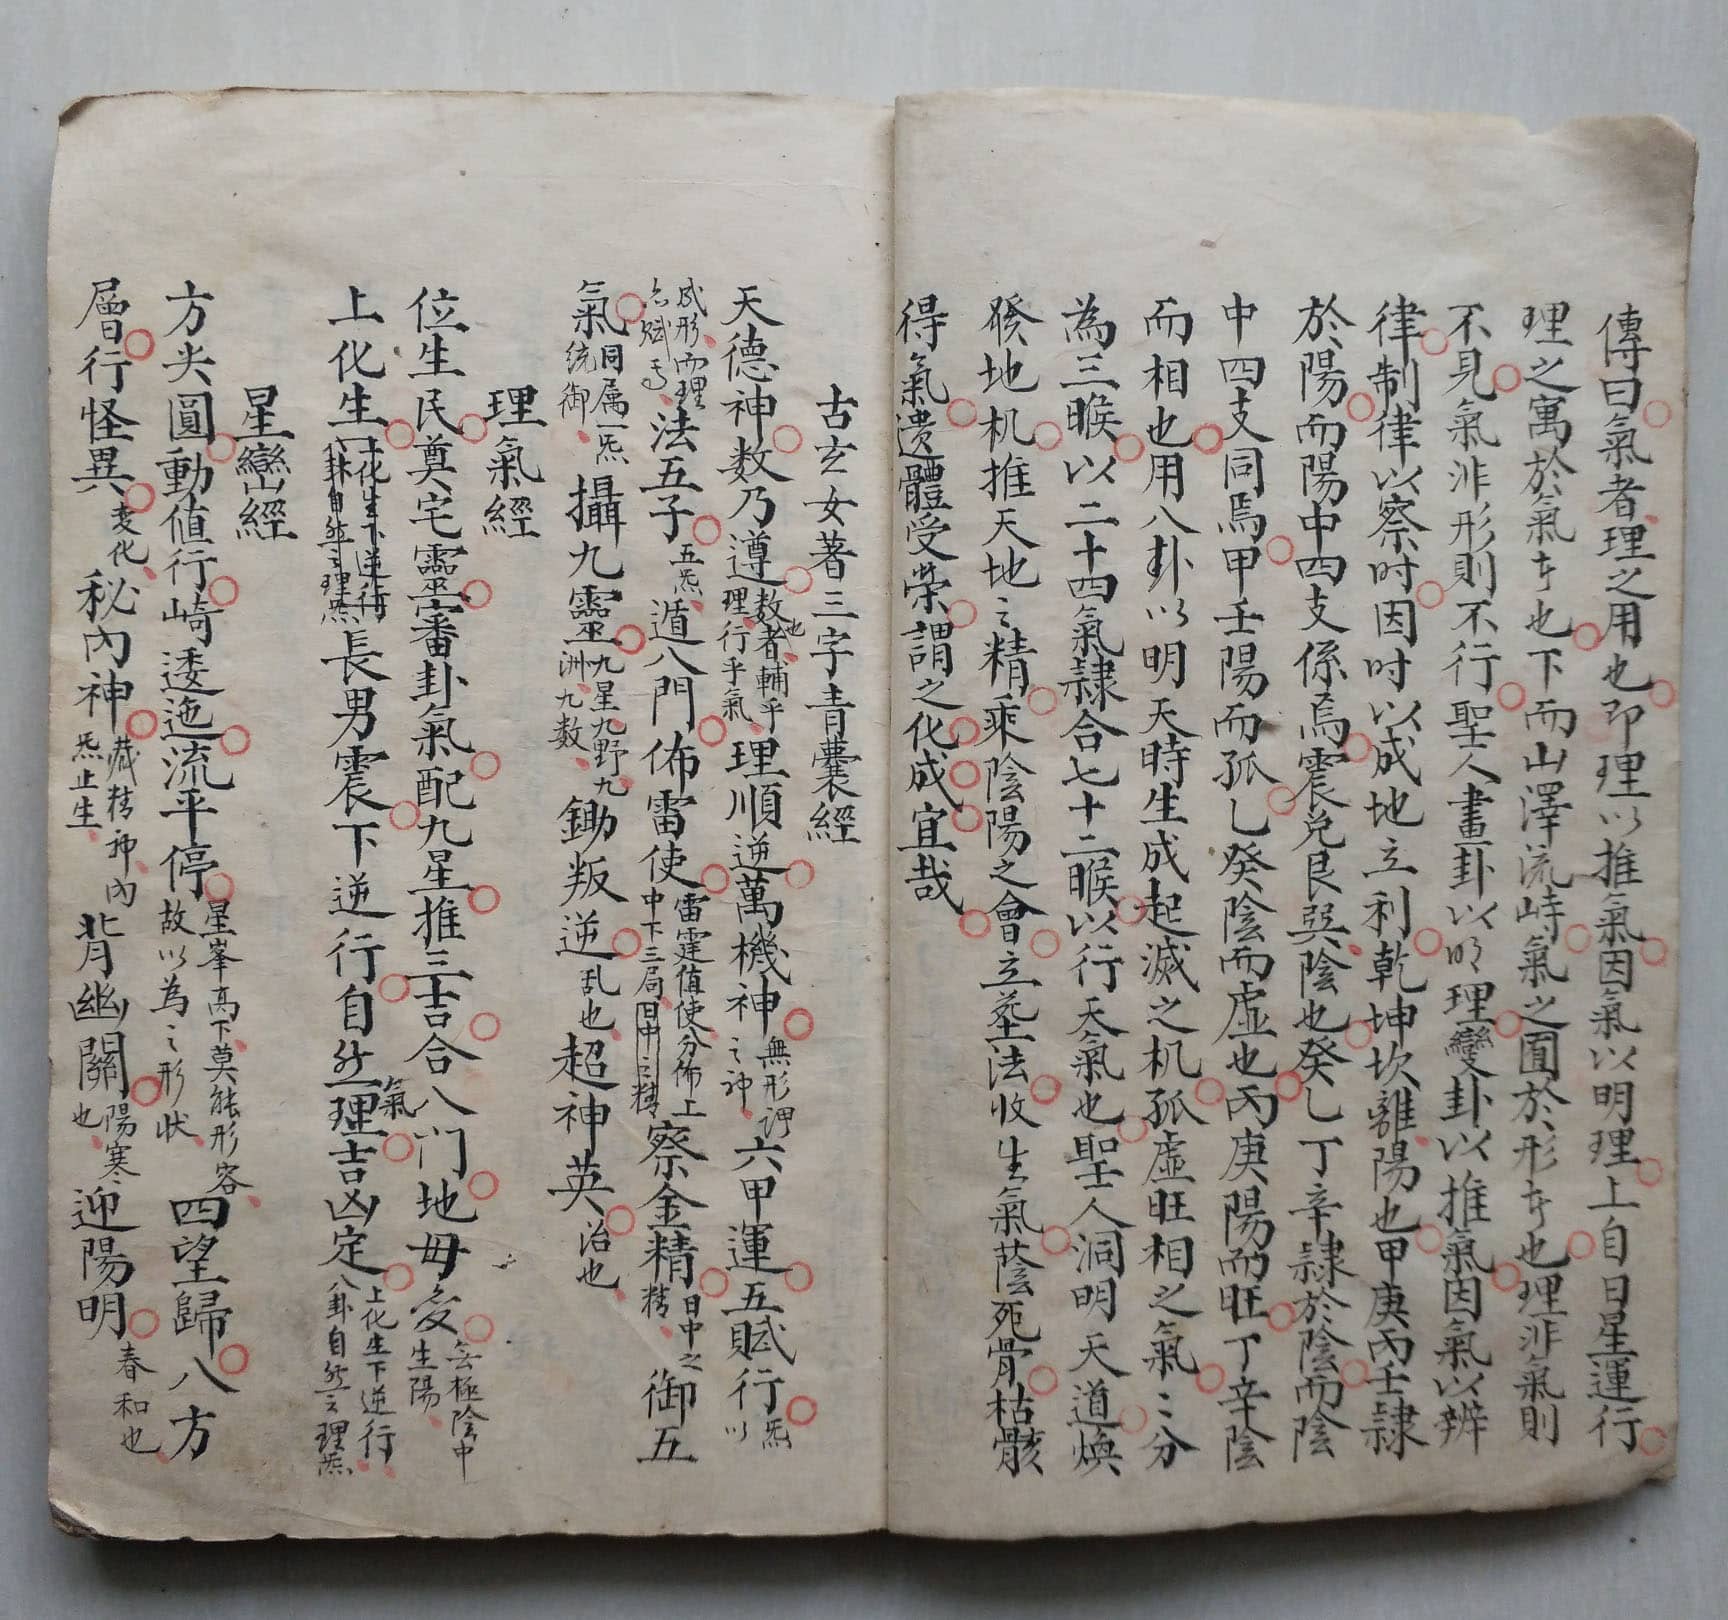 傳曰氣者理之用也即理以推氣因氣以明理上自日星運行
理之寓於氣者也下而山澤流峙氣之囿於形者也理非氣則
不見氣非形則不行聖人畫卦以明理變卦以推氣因氣以辨
律制律以察时因时以成地立利乾坤坎離陽也甲庚丙壬隸
於陽而陽中四支係焉震兌艮巽陰也癸乙丁辛隸於陰而陰
中四支同焉甲壬陽而孤乙癸陰而虛也丙庚陽而旺丁辛陰
而相也用八卦以明天時生成起滅之机孤虛旺相之氣〻分
為三睺以二十四氣隸合七十二睺以行天氣也聖人洞明天道煥
發地机推天地之精乘陰陽之會立塟法收生氣蔭死骨枯骸
得氣遺體受榮謂之化成宜哉
古玄女著三字青囊經
天德神数乃遵数者輔乎也理行乎氣理順逆萬機神無形謂之神六甲運五賦行炁以
成形而理亦賦焉法五子五炁遁八門佈雷使雷霆值使分佈上中下三局日中之精察金精日中之精御五
氣同属一炁統御攝九靈九星九野九洲九数鋤叛逆乱也超神英治也
理氣經
位生民奠宅靈審卦氣配九星推三吉合八門地母変無極陰中生陽
上化生上化生下逆行八卦自然之理炁長男震下逆行自然理氣吉凶定上化生下逆行八卦自然之理炁
星巒經
方尖圓動值行崎逶迤流平停星峯高下莫能形容故以為之形状四望歸八方
層行怪異变化秘內神藏精神內炁止生背幽關陽寒也迎陽明春和也